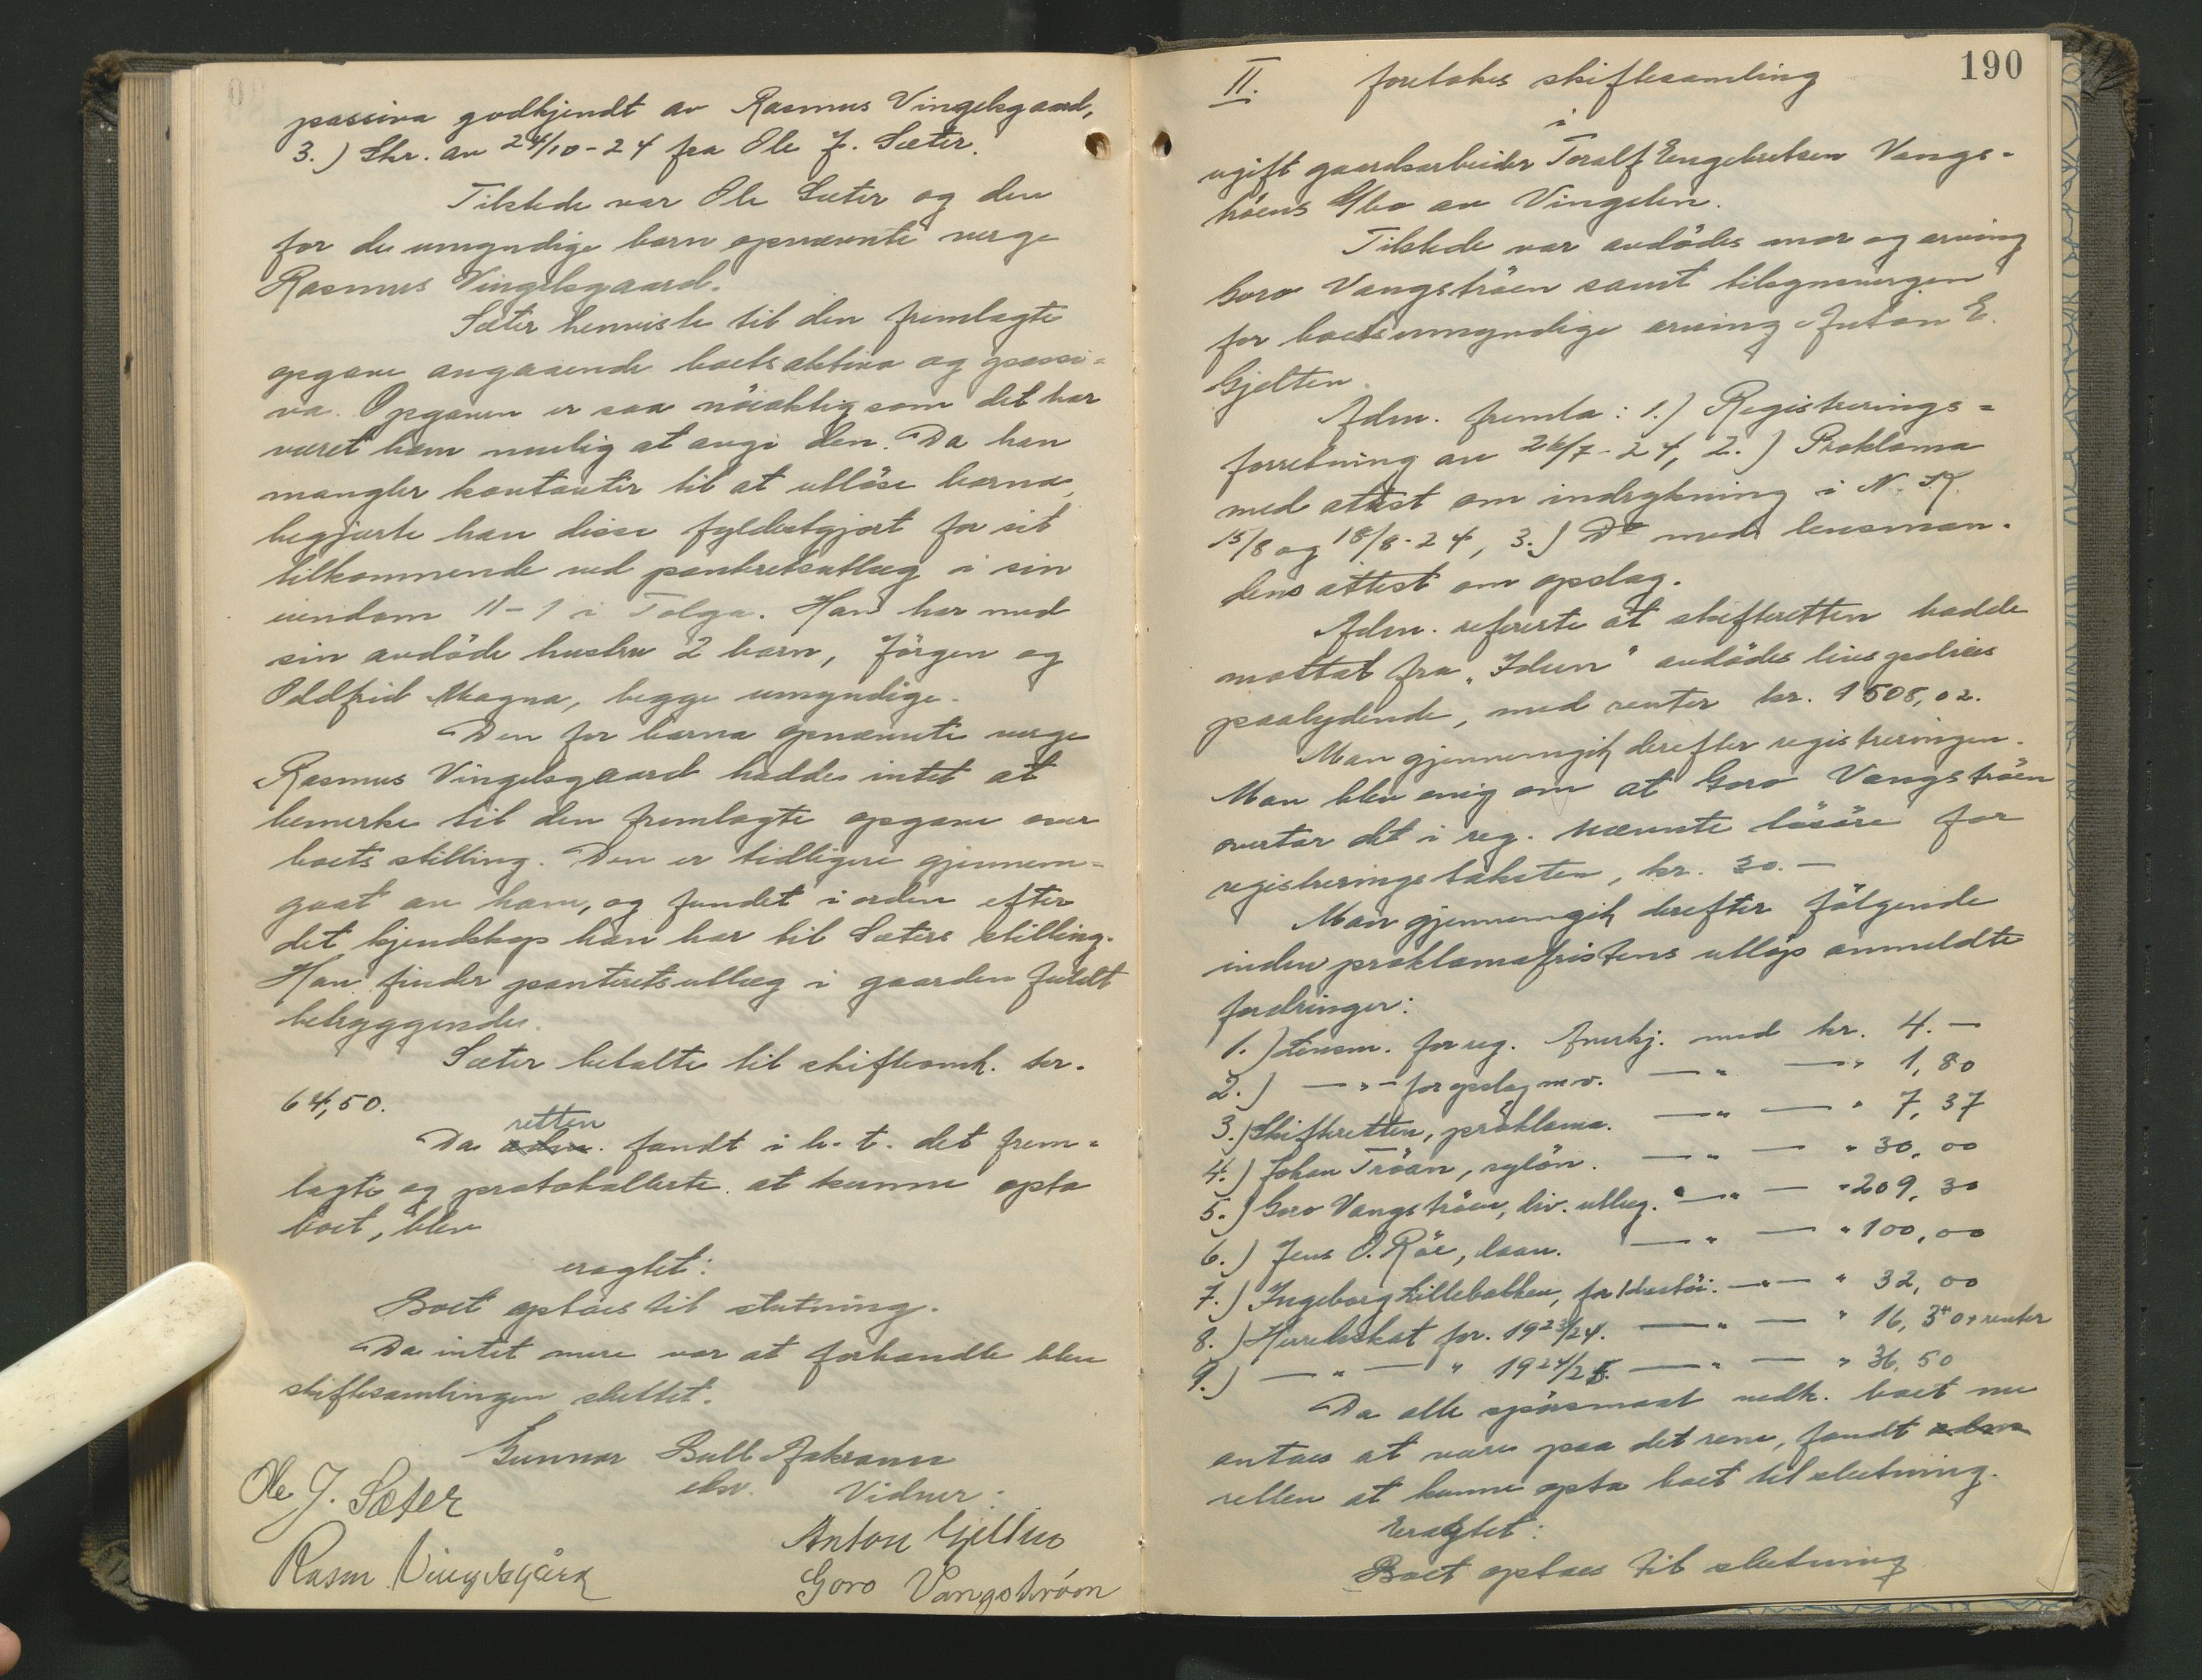 passiva godkjendt av Rasmus Vingelsgaard,
3.) Skr. av 24/10-24 fra Ole J. Sæter.
Tilstede var Ole Sæter og den
for de umyndige barn opnævnte verge
Rasmus Vingelsgaard.
Sæter henviste til den fremlagte
opgave angaaende boets aktiva og passi=
va. Opgaven er saa nöiaktig som det har
været ham mulig at avgi den. Da han
mangler kontanter til at utlöse barna,
begjærte han disse fyldestgjort for sit
tilkommende ved panteretsutlæg i sin
eiendom 11-1 i Tolga. Han har med
sin avdöde hustru 2 barn, Jörgen og
Oddfrid Magna, begge umyndige.
Den for barna opnævnte verge
Rasmus Vingelsgaard hadde intet at
bemerke til den fremlagte opgave over
boets stilling. Den er tidligere gjennem=
gaat av ham, og fundet i orden efter
det kjendskap han har til Sæters stilling.
Han finder panteretsutlæg i gaarden fuldt
betryggende.
Sæter betalte til skifteomk. kr.
64,50.
retten
Da adm. fandt i h. t. det frem=
lagte og protokollerte at kunne opta
boet, blev
eragtet:
Boet optaes til slutning.
Da intet mere var at forhandle blev
skiftesamlingen sluttet.
Gunnar Bull Aakrann
Ole J. Sæter
Vidner:
Rasm Vingelsgård
Anton Gjelten
Goro Vangströen
190
II. foretokes skiftesamling
i
ugift gaardsarbeider Toralf Engebretsen Vangs=
tröens Dbo av Vingelen.
Tilstede var avdödes mor og arving
Goro Vangströen samt tilsynsvergen
for boets umyndige arving Anton E.
Gjelten.
Adm. fremla: 1.) Registrerings=
forretning av 26/7-24, 2.) Proklama
med attest om indrykning i N. K.
15/8 og 18/8-24, 3.) Do med lensman=
dens attest om opslag.
Adm. refererte at skifteretten hadde
mottat fra "Idun" avdödes livspolices
paalydende, med renter kr. 1508,02.
Man gjennemgik derefter registreringen.
Man blev enig om at Goro Vangströen
overtar det i reg. nævnte lösöre for
registreringstaksten, kr. 30.—
Man gjennemgik derefter fölgende
inden proklamafristens utlöp anmeldte
fordringer:
1.) Lensm. for reg. Anerkj. med kr. 4.—
2.) —"— for opslag m.v. —"— —" 1,80
3.) Skifteretten, proklama. —"— —" 7,37
4.) Johan Tröan, sylön. —"— —" 30,00
5.) Goro Vangströen, div. utlæg. —"— —" 209,30
6.) Jens O. Röe, laan. —"— —" 100,00
7.) Ingeborg Lillebakken, for 1 —"— " 32,00
8.) Herredsskat for 1923/24. —"— —" 16,30 + renter
9.) —"— " 1924/25. —"— —" 36,50
Da alle spörsmaal vedk. boet nu
antaes at være paa det rene, fandt adm
retten at kunne opta boet til slutning.
Eragtet:
Boet optaes til slutning